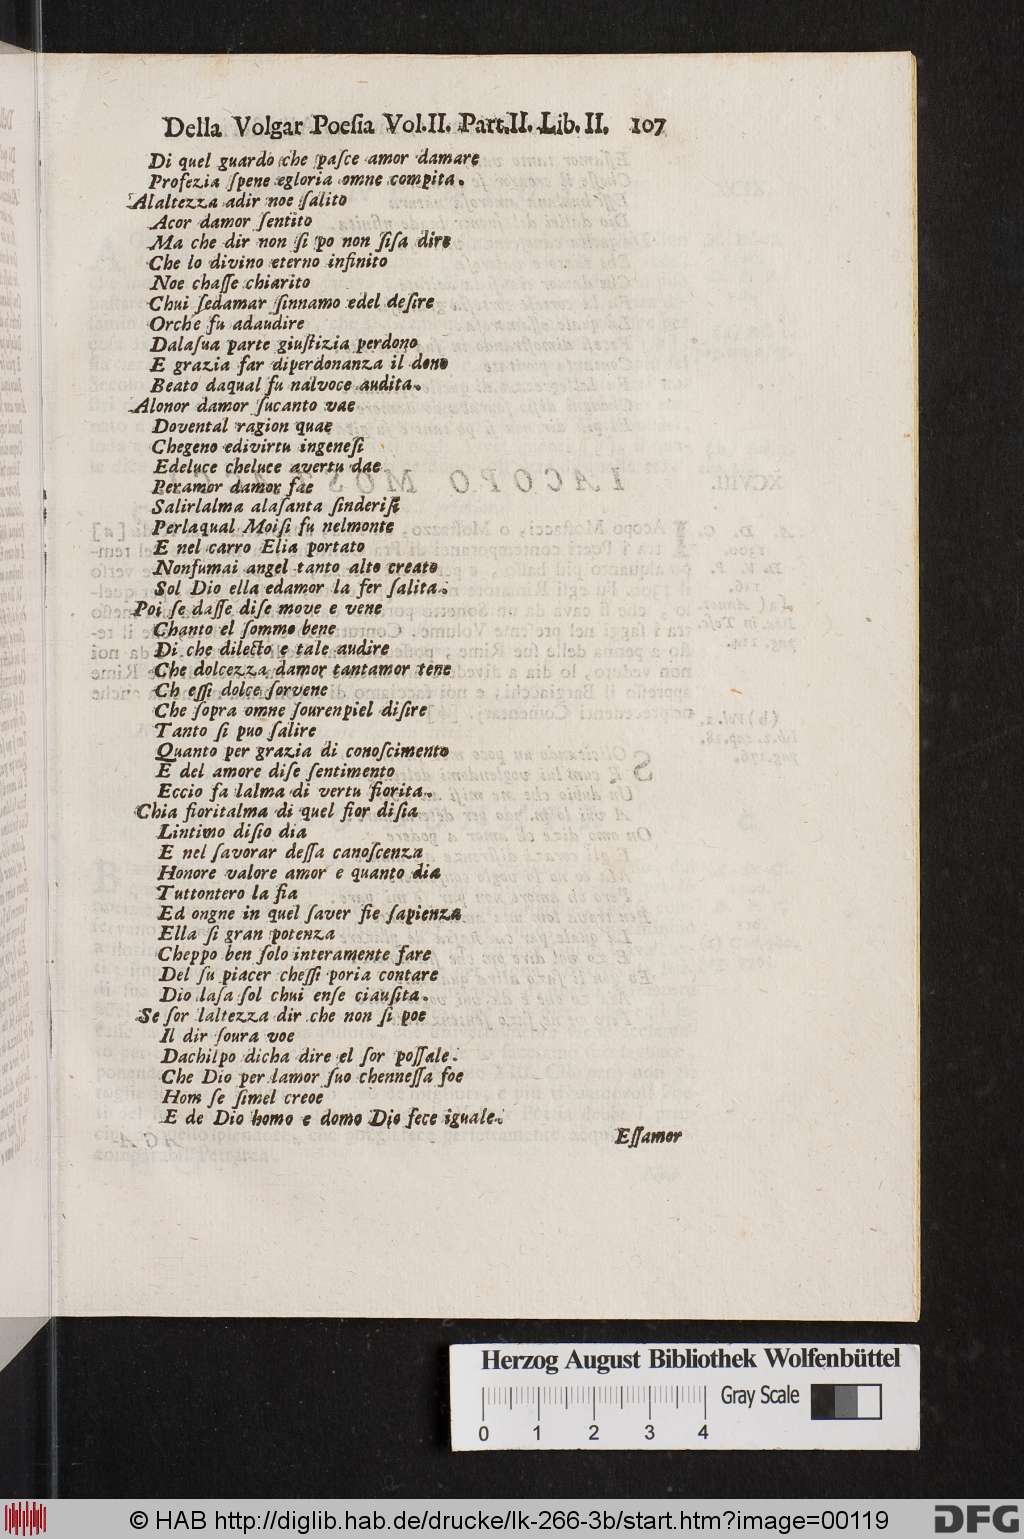 Della Volgar Poeſia Vol.II. Part.II. Lib. II. 107
Di quel guardo che paſce amor damare
Profezia ſpene egloria omne compita.
Alaltezza adir noe ſalito
Acor damor ſentito
Ma che dir non ſi po non ſiſa dire
Che lo divino eterno infinito
Noe chaſſe chiarito
Chui ſedamar ſinnamo edel deſire
Orche fu adaudire
Dalaſua parte giuſtizia perdono
E grazia far diperdonanza il dono
Beato daqual fu nalvoce audita.
Alonor damor ſucanto vae
Dovental ragion quae
Chegeno edivirtu ingeneſi
Edeluce cheluce avertu dae
Peramor damor fae
Salirlalma alaſanta ſinderiſi
Perlaqual Moiſi fu nelmonte
E nel carro Elia portato
Nonfumai angel tanto alto creato
Sol Dio ella edamor la fer ſalita.
Poi ſe daſſe diſe move e vene
Chanto el ſommo bene
Di che dilecto e tale audire
Che dolcezza damor tantamor tene
Ch eſſi dolce ſorvene
Che ſopra omne ſourenpiel diſire
Tanto ſi puo ſalire
Quanto per grazia di conoſcimento
E del amore diſe ſentimento
Eccio fa lalma di vertu fiorita.
Chia fioritalma di quel fior diſia
Lintimo diſio dia
E nel ſavorar deſſa canoſcenza
Honore valore amor e quanto dia
Tuttontero la fia
Ed ongne in quel ſaver fie ſapienza
Ella ſi gran potenza
Cheppo ben ſolo interamente fare
Del ſu piacer cheſſi poria contare
Dio laſa ſol chui enſe ciauſita.
Se ſor laltezza dir che non ſi poe
Il dir ſoura voe
Dachilpo dicha dire el ſor poſſale.
Che Dio per lamor ſuo chenneſſa foe
Hom ſe ſimel creoe
E de Dio homo e domo Dio fece iguale.
Eſſamor
Herzog August Bibliothek Wolfenbüttel
Gray Scale
0 1 2 3 4
© HAB http://diglib.hab.de/drucke/lk-266-3b/start.htm?image=00119
DFG